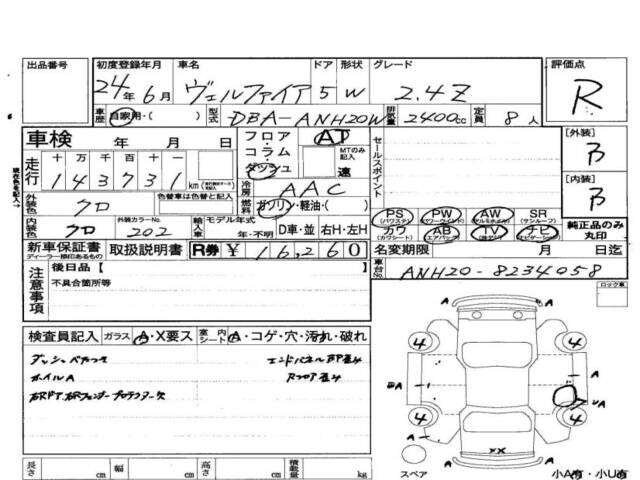 出品番号 初度登録年月 車名 ドア 形状 グレード 評価点
24年 6月 ヴェルファイア 5 W 2.4Z R
車歴 自家用・( ) 型式 DBA-ANH20W 排気量 2400cc 定員 8人
車検 年 月 日 フロア・コラム・ダッシュ AT MTのみ記入 速 セールスポイント [外装] B
走行 十 万 千 百 十 一
1 4 3 7 3 1 km
冷房 AAC [内装] B
外装色 クロ 色替車は色替と記入 燃料 ガソリン・軽油・( )
PS (パワステ) PW (パワーウインド) AW (アルミホイル) SR (サンルーフ)
内装色 クロ 外装カラーNo. 202 輸入車 モデル年式 年・不明 D車・並 右H・左H
カワ (カワシート) AB (エアバック) TV ナビ (ナビゲーション) 純正品のみ丸印
新車保証書 ディーラー捺印あるもの 取扱説明書 R券 ¥ 16,260 名変期限 月 日迄
注意事項 後日品 [ ]
不具合箇所等
車台No. ANH20-8234058
ロック車
検査員記入 ガラス A・X要ス 室内シート A・コゲ・穴・汚れ・破れ
ダッシュベタつき エンドパネルBP歪み
ホイルA Rフロア歪み
4 4
A A
A
4 4
UA
A A
XX
A A
スペア 小A有・小U有
長さ cm 幅 cm 高さ cm 積載量 kg
現在色を記入→